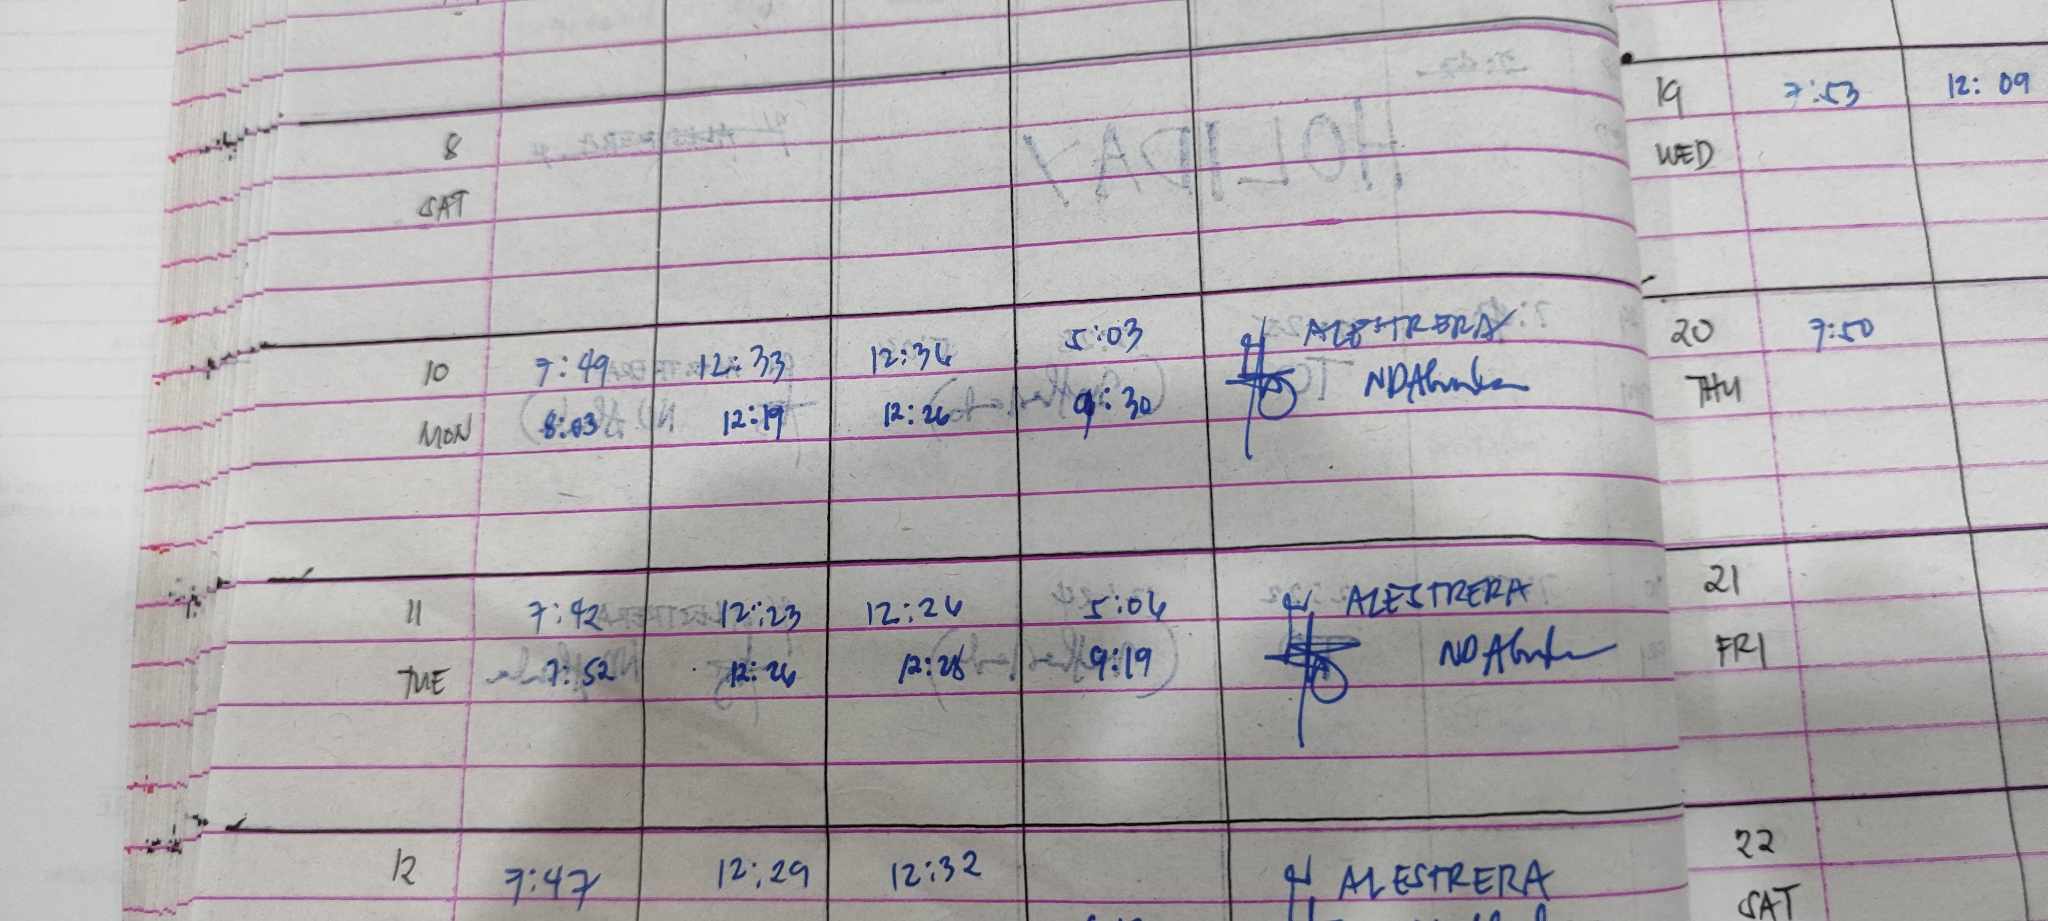 8
SAT
HOLIDAY
10 7:49 12:33 12:36 5:03 ALESTRERA
MON 8:03 12:19 12:26 9:30
11 7:42 12:23 12:26 5:06 ALESTRERA
TUE 7:52 12:26 12:28 9:19
12 7:47 12:29 12:32 ALESTRERA
19 7:53 12:09
WED
20 7:50
THU
21
FRI
22
SAT